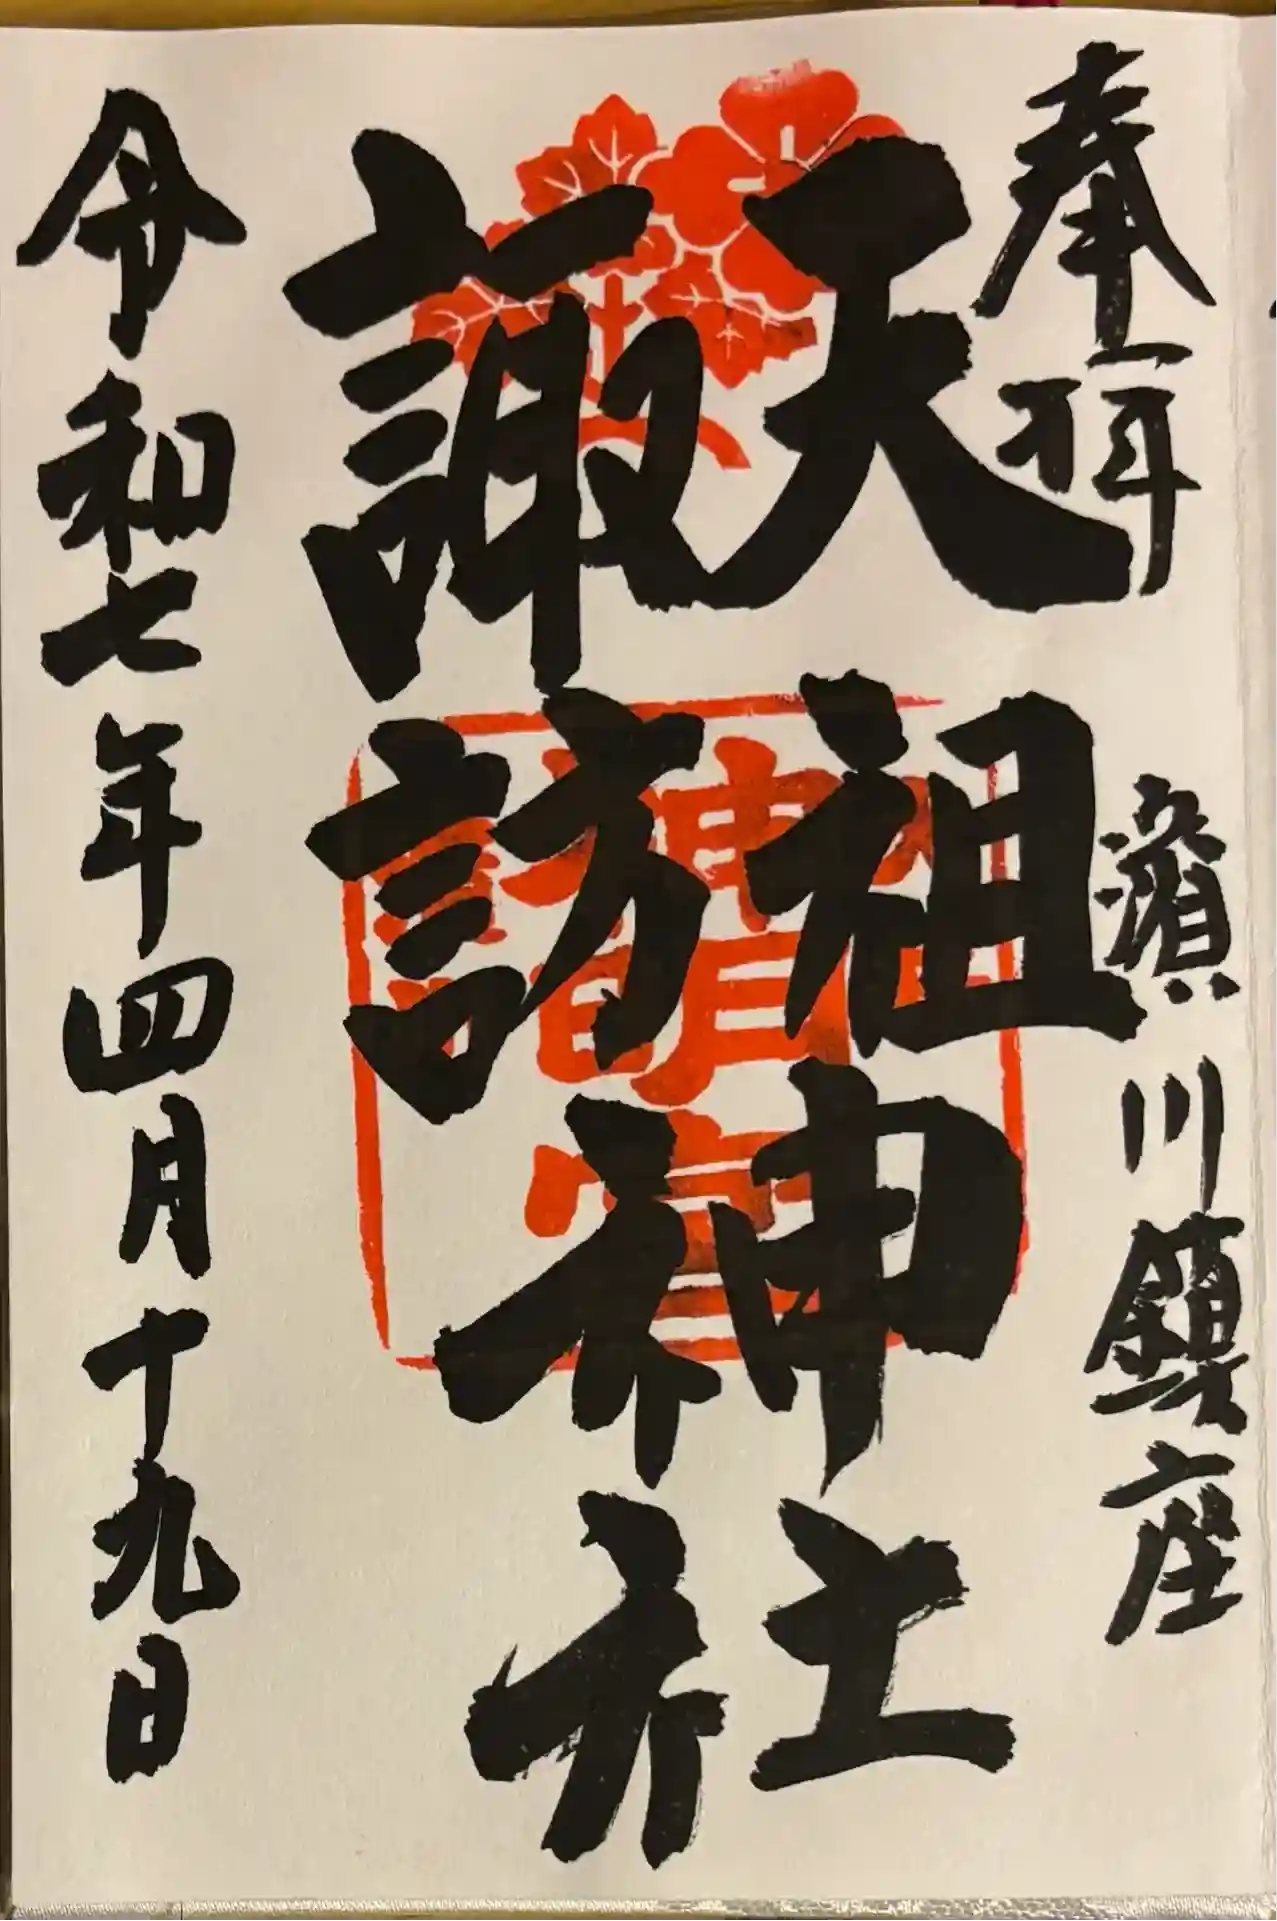 奉拝
濱川鎮座
天祖
諏訪
神社
令和七年四月十九日